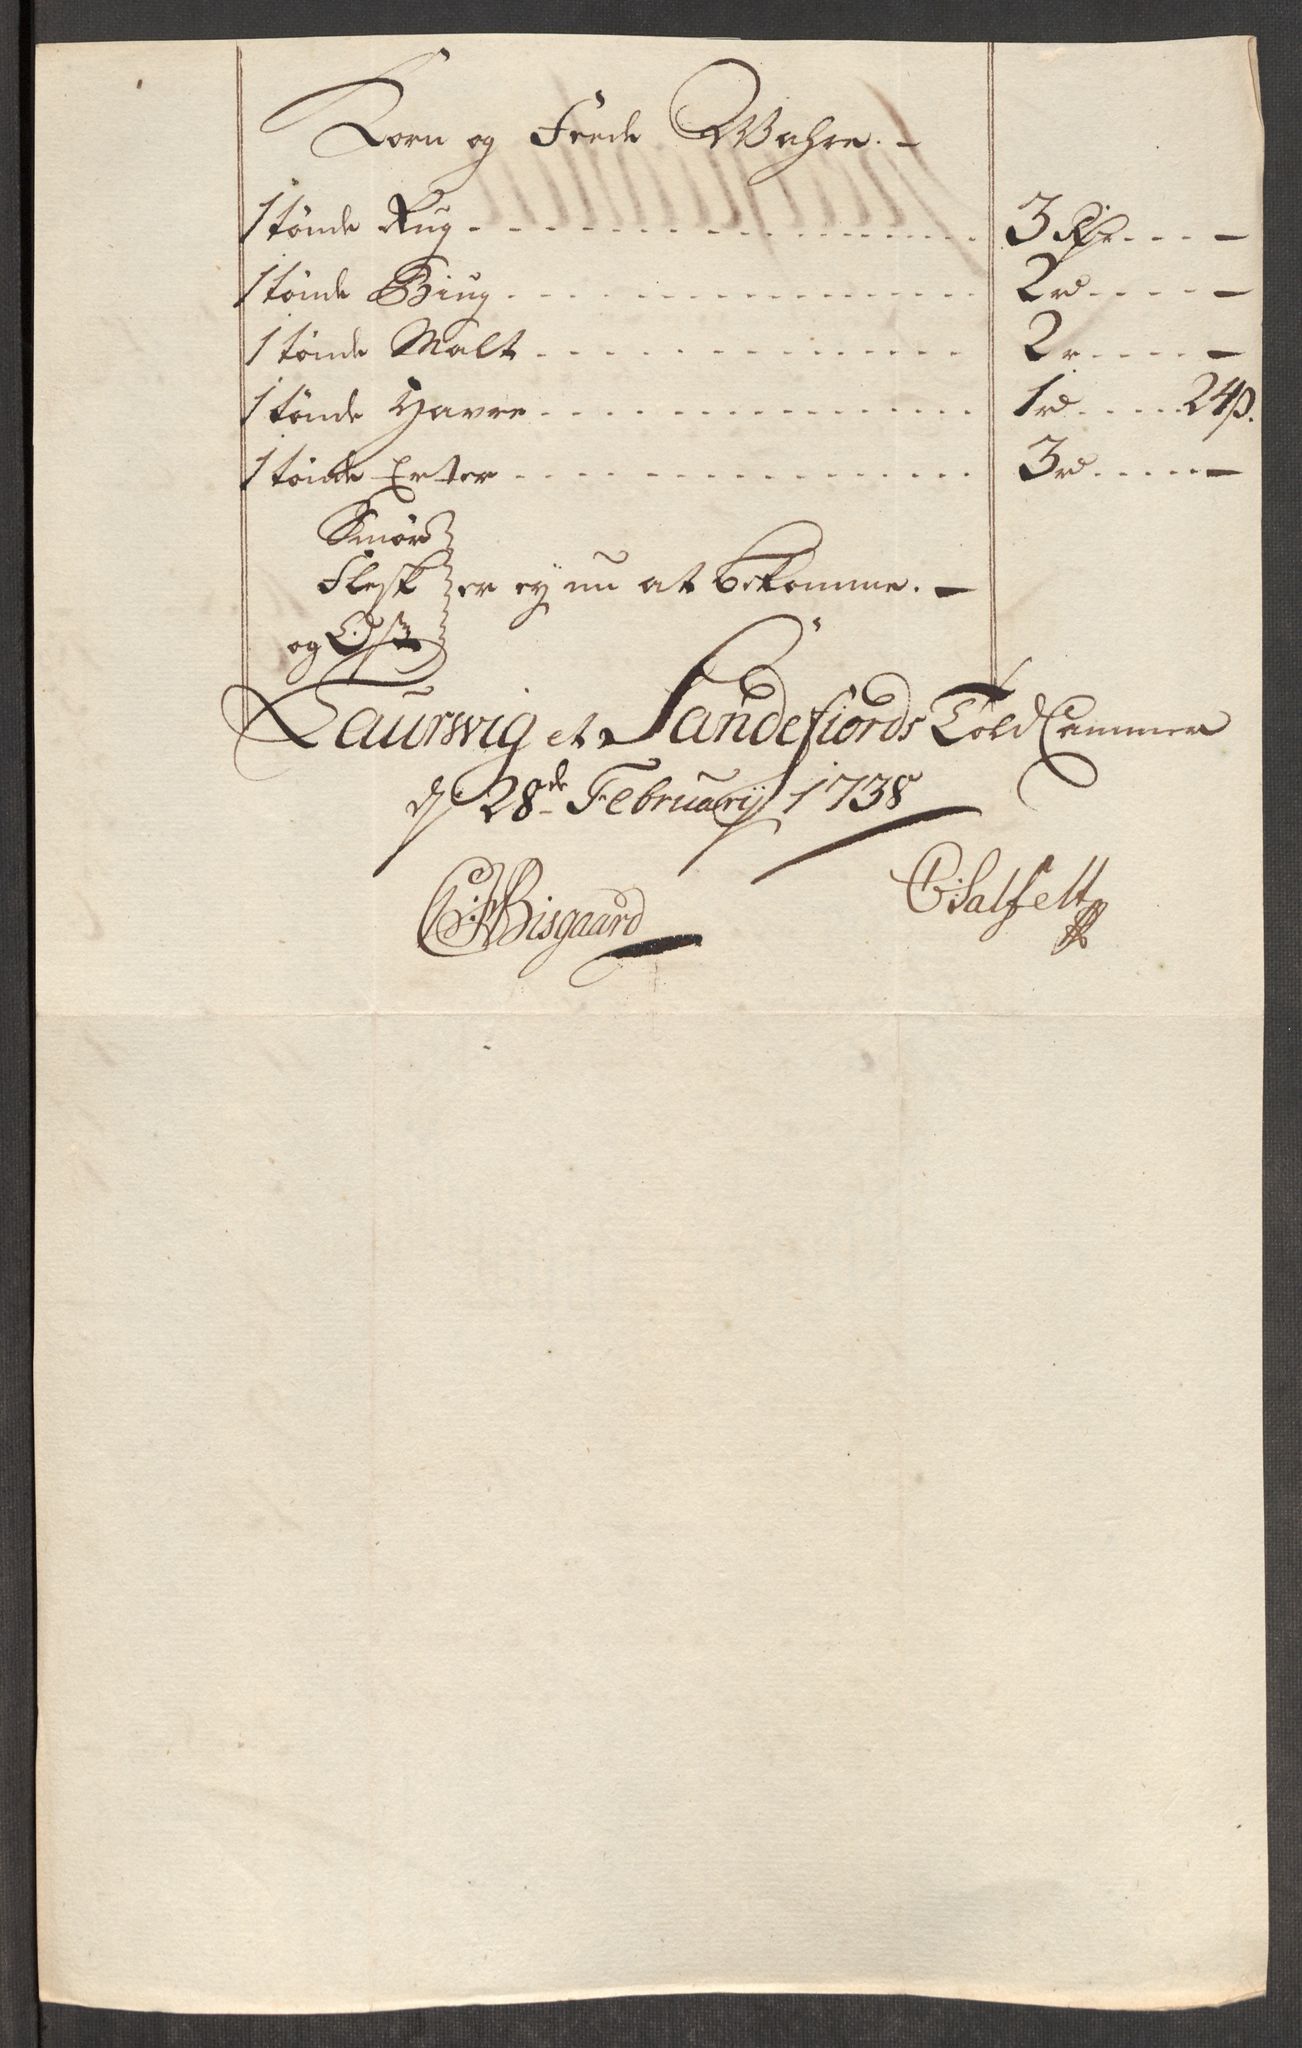 Korn og Feede Wahre. -
1 tönde Rug . . . 3 Rdr . . . -
1 tönde Biug . . . 2 rd . . . -
1 tönde Malt . . . 2 r . . . -
1 tönde Havre . . . 1 rd . . . 24 ß.
1 tönde Erter . . . 3 rd . . . -
Smör
Flesk er ey nu at bekomme. -
og Ost
Laurwig et Sandefiords Told Cammer
dj 28de Februarij 1738
Bisgaard C: Salfelt